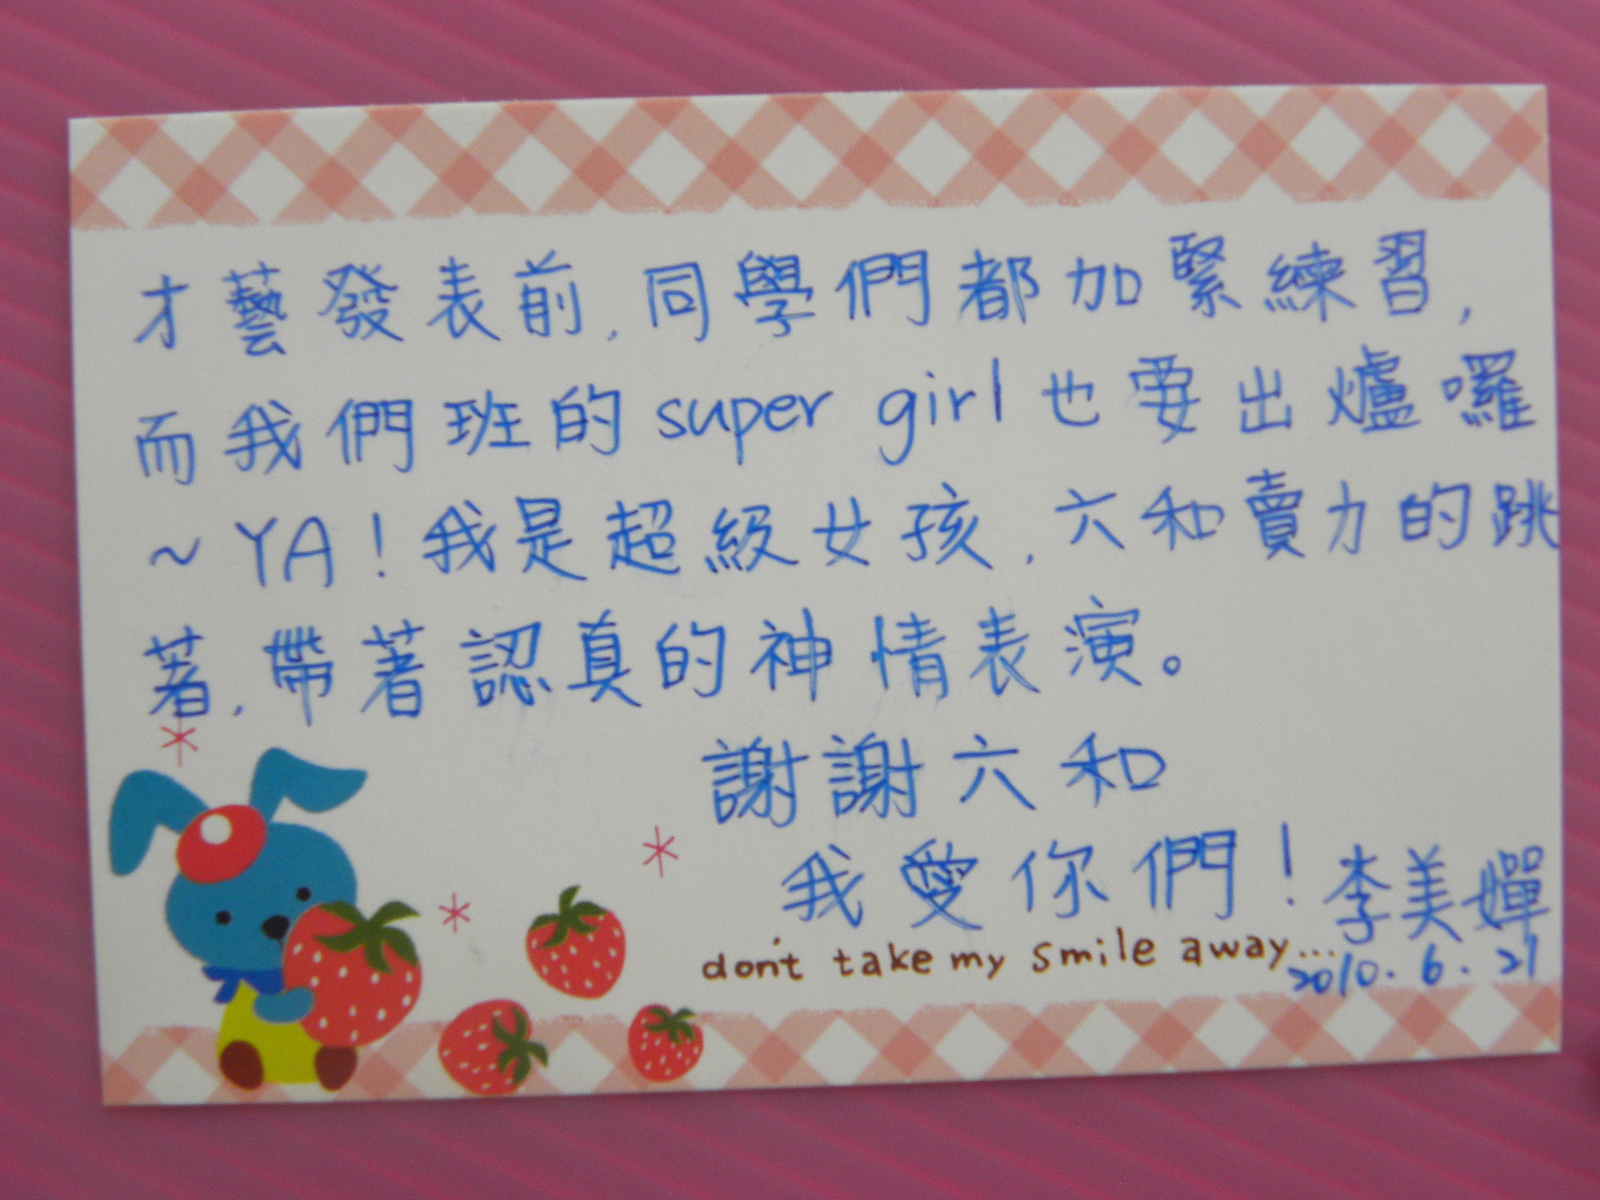 才藝發表前,同學們都加緊練習,
而我們班的super girl也要出爐囉
~YA!我是超級女孩,六和賣力的跳
著,帶著認真的神情表演。
謝謝六和
我愛你們!李美嬋
don't take my smile away...
2010.6.21